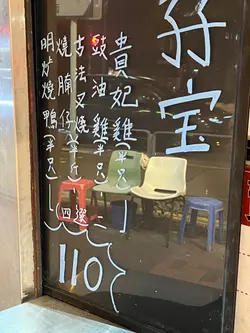 孖宝
貴妃雞(半只)
豉油雞(半只)
古法叉燒(半斤)
燒腩仔(半斤)
明炉燒鴨(半只)
(四選二)
110